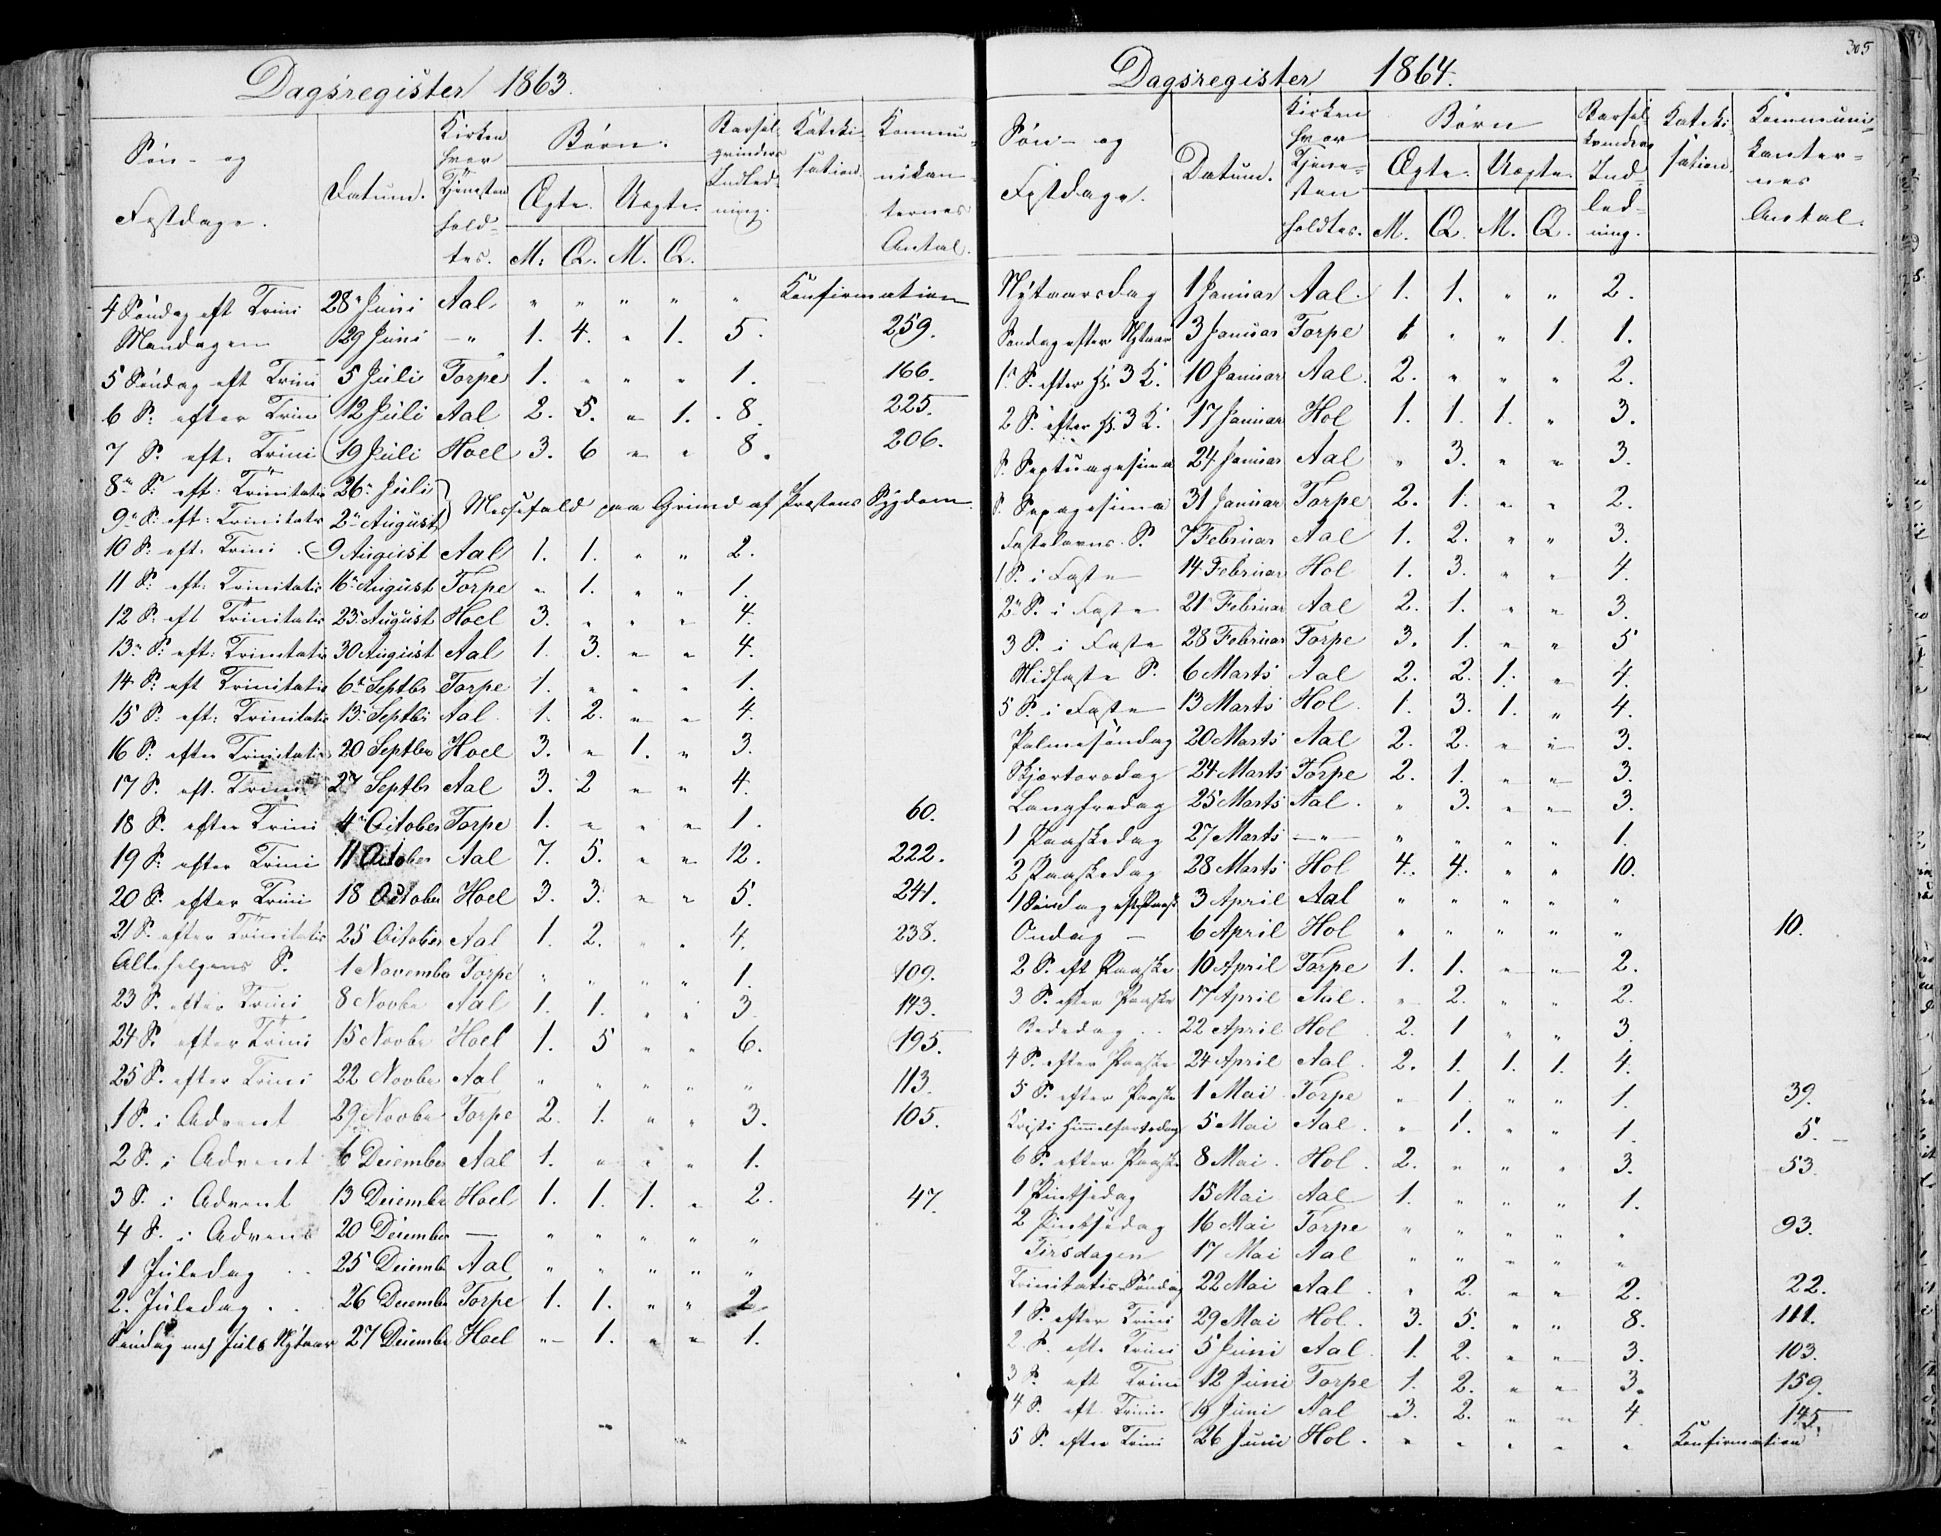 Dagsregister 1863.
Søn- og Festdage. | Datum. | Kirken hvor Tjenesten holdtes. | Børn. Ægte. M. Q. Uægte. M. Q. | Barselqvinders Indledning. | Katekisation. | Kommunikanternes Antal.
4 Søndag eft Trini 28 Juni Aal " " " " " Konfirmation
Mandagen 29 Juni —"— 1. 4. " 1. 5. 259.
5 Søndag eft Trini 5 Juli Torpe 1. " " " 1. 166.
6 S. efter Trin 12 Juli Aal 2. 5. " 1. 8. 225.
7 S. eft. Trini 19 Juli Hoel 3. 6 " " 8. 206.
8de S. eft: Trinitatis 26 Juli
9de S. eft: Trinitatis 2 August } Messefald paa Grund af Præstens Sygdom
10 S. eft. Trini 9 August Aal 1. 1. " " 2.
11 S. eft: Trinitatis 16 August Torpe " 1. " " 1.
12 S. eft Trinitatis 23 August Hoel 3. " " " 4.
13 S. eft: Trinitatis 30 August Aal 1. 3. " " 4.
14 S. eft Trinitatis 6 Septbr Torpe 1. " " " 1.
15 S. eft: Trinitatis 13 Septbr Aal 1. 2. " " 4.
16 S. efter Trinitatis 20 Septbr Hoel 3. " 1. " 3.
17 S. eft. Trini 27 Septbr Aal 3. 2 " " 4.
18 S. efter Trini 4 October Torpe 1. " " " 1. 60.
19 S. efter Trini 11 October Aal 7. 5. " " 12. 222.
20 S. efter Trini 18 October Hoel 3. 3. " " 5. 241.
21 S. efter Trinitatis 25 October Aal 1. 2. " " 4. 238.
Allehelgens S. 1 Novembe Torpe " " " " 1. 109.
23 S. efter Trini 8 Novbe Aal 1. 1. " " 3. 143.
24 S. efter Trini 15 Novbe Hoel 1. 5 " " 6. 195.
25 S. efter Trini 22 Novbe Aal " " " " " 113.
1 S. i Advent 29 Novbe Torpe 2. 1. " " 3. 105.
2 S. i Advent 6 Decembe Aal 1. " " " 1.
3 S. i Advent 13 Decembe Hoel 1. 1. 1. " 2. 47.
4 S. i Advent 20 Decembe — " " " " "
1 Juledag 25 Decemb Aal " " " " "
2. Juledag 26 Decembe Torpe 1. 1. " " 2
Søndag mel Jul & Nytaar 27 Decembe Hoel " 1. " " 1.
305
Dagsregister 1864.
Søn- og Festdage. | Datum. | Kirken hvor Tjenesten holdtes. | Børn Ægte. M. Q. Uægte. M. Q. | Barselkvinders Indledning. | Katekisation. | Kommunikanternes Antal.
Nytaarsdag 1 Januar Aal 1. 1. " " 2.
Søndag efter Nytaar 3 Januar Torpe 1 " " 1. 1.
1 S. efter H. 3 K. 10 Januar Aal 2. " " " 2.
2 S. efter H. 3 K. 17 Januar Hol 1. 1. 1. " 3.
S. Septuagesima 24 Januar Aal " 3. " " 3.
S. Sexagesima 31 Januar Torpe 2. 1. " " 2.
Fastelavns S. 7 Februar Aal 1. 2. " " 3.
1 S. i Faste 14 Februar Hol 1. 3. " " 4.
2 S. i Faste 21 Februar Aal 2. 1. " " 3.
3 S. i Faste 28 Februar Torpe 3. 1. " " 5
Midfaste S. 6 Marts Aal 2. 2. 1. " 4.
5 S. i Faste 13 Marts Hol 1. 3. 1. " 4.
Palmesøndag 20 Marts Aal 2. 2. " " 3.
Skjærtorsdag 24 Marts Torpe 2. 1. " " 3.
Langfredag 25 Marts Aal " 3. " " 3.
1 Paaskedag 27 Marts —"— " " " " 1.
2 Paaskedag 28 Marts Hol 4. 4. " " 10.
1 Søndag eft Paask 3 April Aal " " " " "
Onsdag — 6 April Hol " " " " " 10.
2 S. eft Paaske 10 April Torpe 1. 1. " " 2.
3 S. efter Paaske 17 April Aal " 2. " " 2.
Bededag 22 April Hol 2. 1 " " 3.
4 S. efter Paaske 24 April Aal 2. 1. 1. 1. 4.
5 S. efter Paaske 1 Mai Torpe " 1. " " 1. 39.
Kristi Himmelfartsdag 5 Mai Aal " 1. " " 1. 5.
6 S. efter Paaske 8 Mai Hol 2. " " " 3. 53.
1 Pintsedag 15 Mai Aal 1. " " " 1.
2 Pintsedag 16 Mai Torpe " " " " " 93.
Tirsdagen 17 Mai Aal " " " " "
Trinitatis Søndag 22 Mai Aal " 2. " " 2. 22.
1 S. efter Trini 29 Mai Hol 3. 5. " " 8. 111.
2 S. efte Trini 5 Juni Aal 1. 2. " " 3. 103.
3 S. eft Trini 12 Juni Torpe 1. 2. " " 3. 159.
4 S. eft Trini 19 Juni Aal 3. 2. " " 4 145.
5 S. efter Trini 26 Juni Hol " " " " " Konfirmation